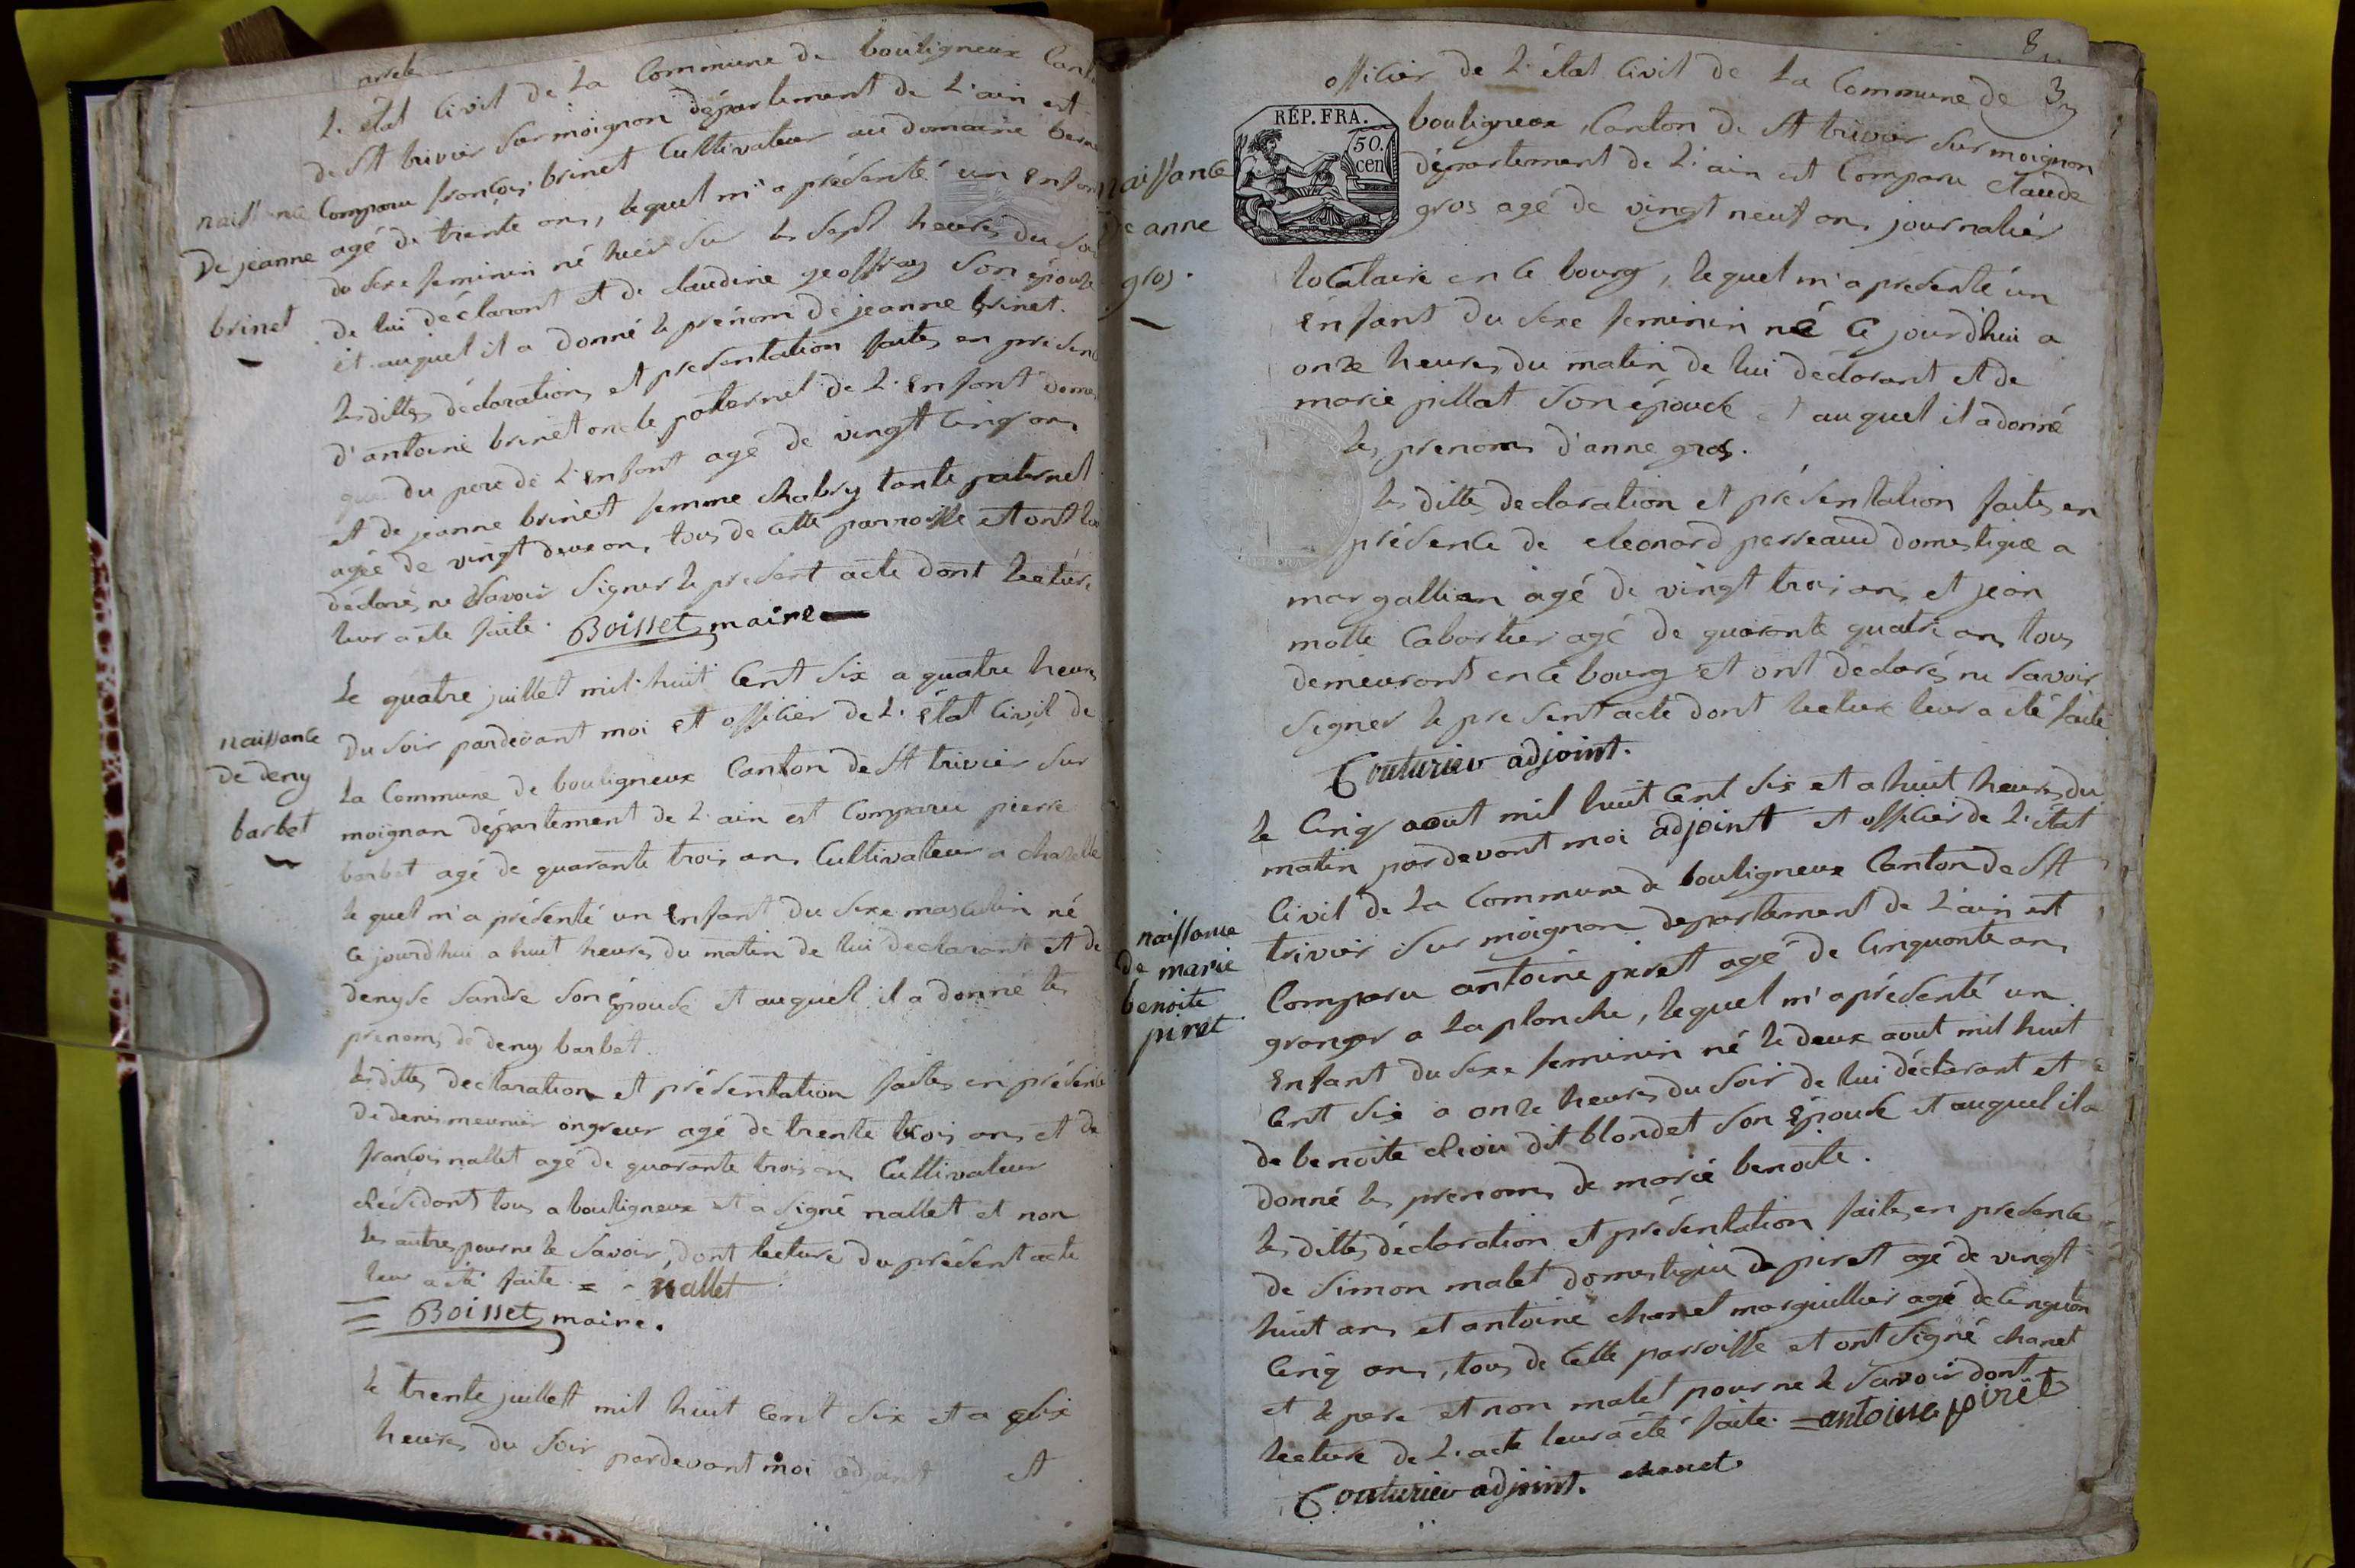 arrete
L'état Civil de La Commune de bouligneux Cant
de St trivier Sur moignon département de L'ain est
Comparu françois brinet Cultivateur au domaine
agé de trente ans, lequel m'a présenté un Enfant
du sexe feminin né hier sur les sept heures du Soir
de lui déclarant et de claudine geoffray Son épouse
et auquel il a donné le prénom de jeanne brinet.
les dittes déclaration et presentation faites en présence
d'antoine brinet oncle paternel de L'Enfant domes
que du pere de L'Enfant agé de vingt Cinq ans
et de jeanne brinet femme Chabry tante paternel
agée de vingt deux ans, tous de Cette parroisse et ont
déclarés ne Savoir Signer le présent acte dont lecture
leur a été faite. Boisset maire
naissance
De jeanne
brinet
Le quatre juillet mil huit Cent Six a quatre heures
Du soir pardevant moi et officier de L'état Civil de
La Commune de bouligneux Canton de St trivier Sur
moignan département de L'ain est Comparu pierre
barbet agé de quarante trois ans Cultivateur a chazelle
lequel m'a présenté un Enfant du Sexe masculin né
Ce jourd'hui a huit heures du matin de lui déclarant et de
denyse Sandre Son épouse et auquel il a donné les
prenoms de deny barbet
les dittes declaration et présentation faites en présence
De denis meunier ongreur agé de trente trois ans et de
françois nallet agé de quarante trois ans Cultivateur
Résidant tous a bouligneux et a signé nallet et non
les autres pour ne le Savoir, dont lecture du présent acte
leur a été faite = - nallet
Boisset maire.
naissance
de deny
barbet
le trente juillet mil huit Cent Six et a Six
heures du Soir pardevant moi adjoint et
8
3
officier de L'état Civil de La Commune de
RÉP. FRA.
50.
cen
bouligneux, Canton de St trivier Sur moignon
département de L'ain est Comparu Claude
gros agé de vingt neuf ans journalier
locataire en Ce bourg, lequel m'a présenté un
Enfant du Sexe feminin né Ce jourd'hui a
onze heures du matin de lui déclarant et de
marie pillat Son épouse et auquel il a donné
les prenoms d'anne gros.
les dittes declaration et présentation faites en
présence de Leonard perreaud domestique a
margallian agé de vingt trois ans et jean
molle Cabartier agé de quarante quatre ans tous
demeurant en Ce bourg et ont déclarés ne Savoir
Signer le présent acte dont lecture leur a été faite
Couturier adjoint.
naissance
De anne
gros.
le Cinq aout mil huit Cent Six et a huit heures du
matin pardevant moi adjoint et officier de L'état
Civil de La Commune de bouligneux Canton de St
trivier Sur moignon departement de L'ain est
Comparu antoine piret agé de Cinquante ans
granger a La planche, lequel m'a présenté un
Enfant du Sexe feminin né le deux aout mil huit
Cent Six a onze heures du Soir de lui déclarant et
de benoite dit blondet Son Epouse et auquel il a
donné les prenoms de marie benoite.
les dittes déclaration et présentation faites en présence
de Simon malet domestique de piret agé de vingt
huit ans et antoine chanel marguillier agé de Cinquante
Cinq ans, tous de Cette parroisse et ont Signé chanet
et le pere et non malet pour ne le Savoir dont
lecture de L'acte leur a été faite. = antoine piret
Couturier adjoint. chanet
naissance
de marie
benoite
piret